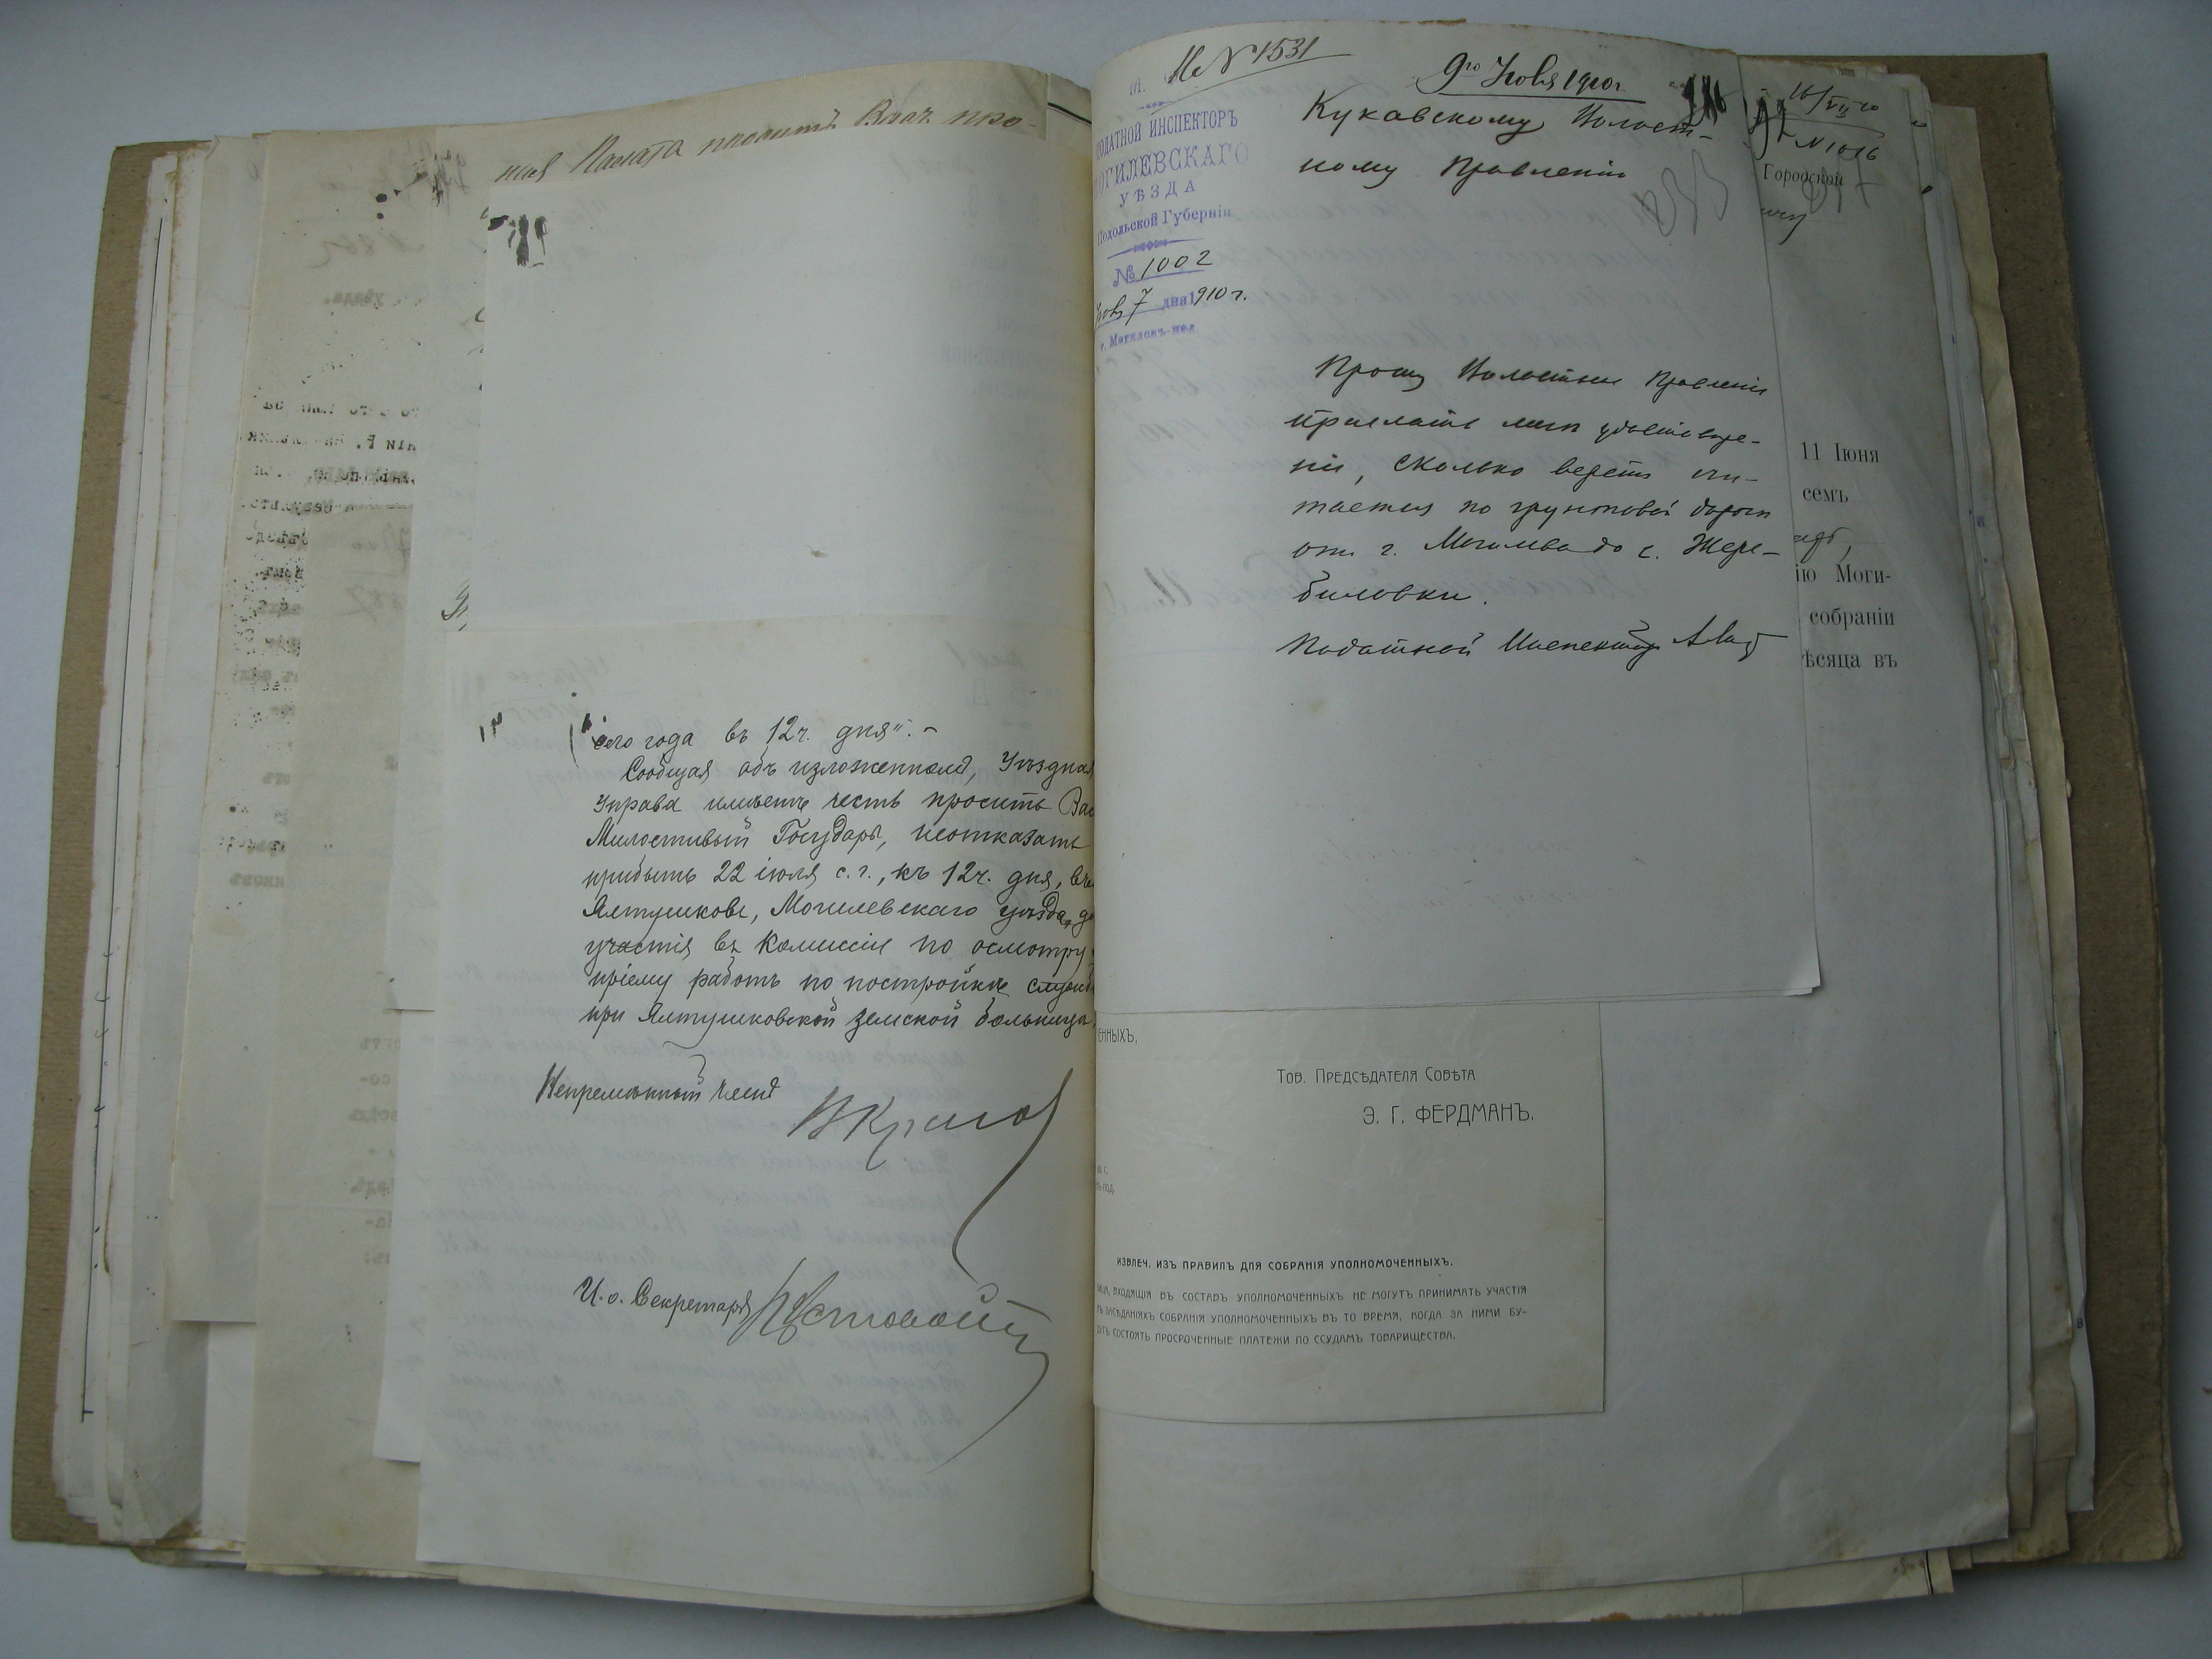 ная Палата проситъ Васъ про-
сего года въ 12 ч. дня". -
Сообщая объ изложенномъ, Уѣздная
Управа имѣетъ честь просить Вас
Милостивый Государь, неотказать
прибыть 22 іюля с. г., къ 12 ч. дня, въ
Ялтушковѣ, Могилевскаго уѣзда, д
участія въ Комиссіи по осмотру
пріему работъ по постройкѣ служб
при Ялтушковской земской больницѣ
Непремѣнный Членъ
И. о. Секретаря
№ 1531
9го Іюля 1910 г.
ПОДАТНОЙ ИНСПЕКТОРЪ
МОГИЛЕВСКАГО
УѢЗДА
Подольской Губерніи
№ 1002
Іюля 7 дня 1910 г.
г. Могилевъ-под
Кукавскому Волост-
ному Правленію
Прошу Волостное Правленіе
прислать мнѣ удостовѣре-
ніе, сколько верстъ счи-
тается по грунтовой дорогѣ
отъ г. Могилева до с. Жере-
биловки.
Податной Инспекторъ
16/VII 10
№ 1016
Городской
11 Іюня
семъ
ію Моги-
собраніи
ѣсяца въ
ЕННЫХЪ,
Тов. Предсѣдателя Совѣта
Э. Г. ФЕРДМАНЪ.
ИЗВЛЕЧ. ИЗЪ ПРАВИЛЪ ДЛЯ СОБРАНІЯ УПОЛНОМОЧЕННЫХЪ.
ЛИЦА, ВХОДЯЩІЯ ВЪ СОСТАВЪ УПОЛНОМОЧЕННЫХЪ НЕ МОГУТЪ ПРИНИМАТЬ УЧАСТІЯ
ВЪ ЗАСѢДАНІЯХЪ СОБРАНІЯ УПОЛНОМОЧЕННЫХЪ ВЪ ТО ВРЕМЯ, КОГДА ЗА НИМИ БУ-
ДУТЪ СОСТОЯТЬ ПРОСРОЧЕННЫЕ ПЛАТЕЖИ ПО ССУДАМЪ ТОВАРИЩЕСТВА.